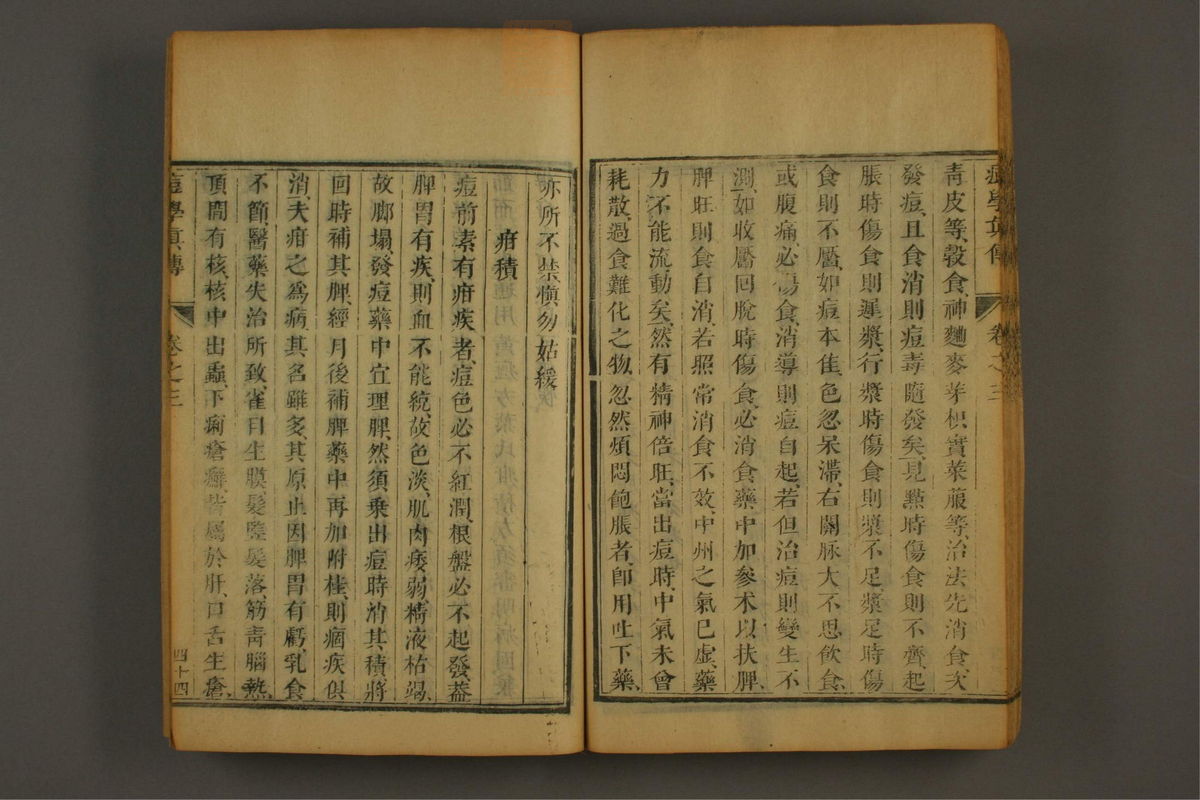 痘學真傳 卷之三
青皮等、穀食、神麯麥芽枳實萊菔等、治法先消食、次
發痘、且食消則痘毒隨發矣、見點時傷食則不齊、起
脹時傷食則遲漿、行漿時傷食則漿不足、漿足時傷
食則不靨、如痘本佳、色忽呆滯、右關脉大不思飲食、
或腹痛、必傷食、消導則痘自起、若但治痘則變生不
測、如收靨回脫時傷食、必消食藥中加參术以扶脾、
脾旺則食自消、若照常消食不效、中州之氣已虛、藥
力不能流動矣、然有精神倍旺、當出痘時、中氣未曾
耗散、過食難化之物、忽然煩悶飽脹者、卽用吐下藥、
亦所不禁、愼勿姑緩、
疳積
痘前素有疳疾者、痘色必不紅潤、根盤必不起發、葢
脾胃有疾、則血不能統、故色淡、肌肉痿弱、精液枯竭、
故脚塌、發痘藥中宜理脾、然須乗出痘時消其積、將
回時補其脾、經月後補脾藥中再加附桂、則痼疾俱
消、夫疳之爲病、其名雖多、其原止因脾胃有虧、乳食
不節、醫藥失治所致、雀目生膜、髮豎髮落、筋靑腦熱、
頂間有核、核中出蟲、下痢瘡癬、皆屬於肝、口舌生瘡、
痘學真傳 卷之三 四十四